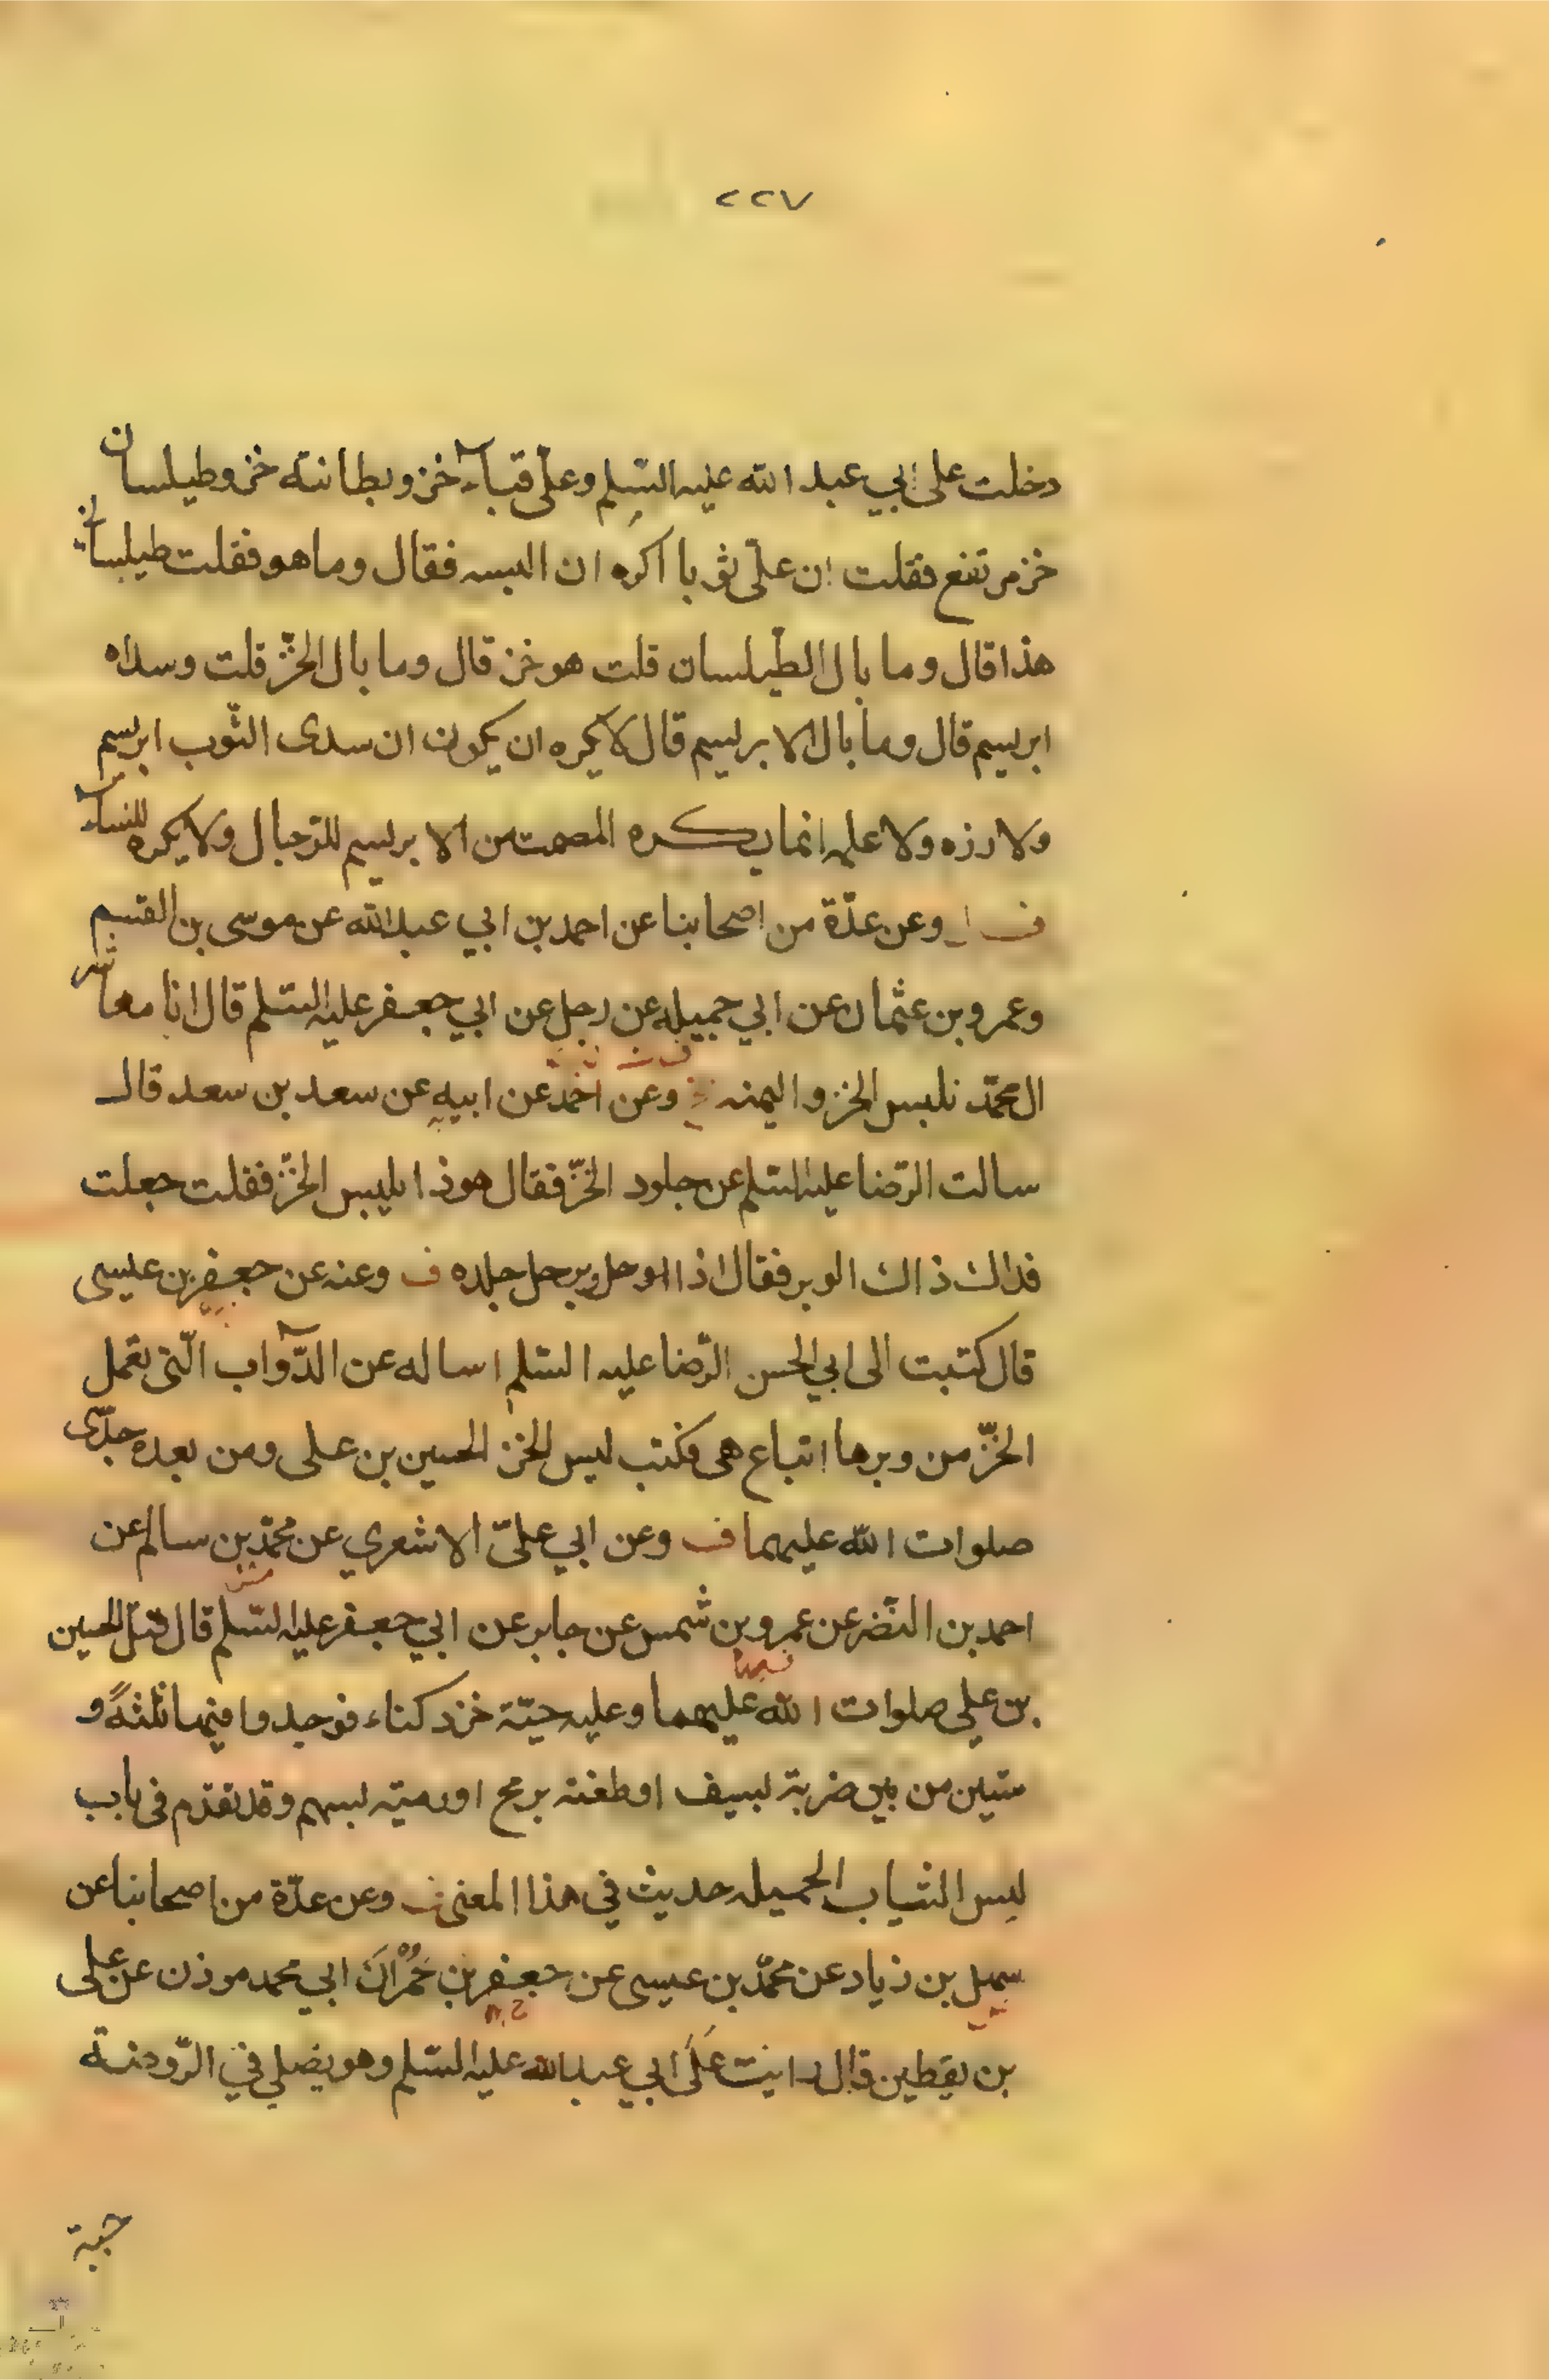 ٢٢٧
دخلت على ابي عبد الله عليه السّلم وعلىّ قباء خز وبطانته خز وطيلسان
خز مرتفع فقلت ان علىّ ثوبا اكره ان البسه فقال وما هو فقلت طيلساني
هذا قال وما بال الطّيلسان قلت هو خز قال وما بال الخزّ قلت وسداه
ابريسم قال وما بال الابريسم قال لا يكره ان يكون ان سدى الثّوب ابريسم
ولا زره ولا علمه انما يكره المصمت من الابريسم للرّجال ولا يكره للنساء
ف وعن عدّة من اصحابنا عن احمد بن ابي عبد الله عن موسى بن القسم
وعمرو بن عثمان عن ابي جميله عن رجل عن ابي جعفر عليه السّلم قال انا معاشر
ال محمّد نلبس الخز واليمنه وعن احمد عن ابيه عن سعد بن سعد قال
سالت الرّضا عليه السّلم عن جلود الخزّ فقال هوذا يلبس الخزّ فقلت جعلت
فداك ذاك الوبر فقال اذا حل وبر حل جلده ف وعنه عن جعفر بن عيسى
قال كتبت الى ابي الحسن الرّضا عليه السّلم اساله عن الدّواب الّتى يعمل
الخزّ من وبرها اتباع هى فكتب لبس الخز الحسين بن على ومن بعده جدّى
صلوات الله عليهما ف وعن ابي علىّ الاشعري عن محمّد بن سالم عن
احمد بن النّضر عن عمرو بن شمس عن جابر عن ابي جعفر عليه السّلم قال قتل الحسين
بن علي صلوات الله عليهما وعليه جبّة خز دكناء فوجدوا فيها ثلثةً و
ستين من بين ضربة بسيف او طعنه برمح او رميه بسهم وقد تقدّم فى باب
لبس الثياب الجميله حديث في هذا المعنى ف وعن عدّة من اصحابنا عن
سهل بن زياد عن محمّد بن عيسى عن جعفر بن حُمْران ابي محمد موذن عن على
بن يقطين قال رايت عَلَى ابي عبدالله عليه السّلم وهو يصلي في الرّوضة
جبة